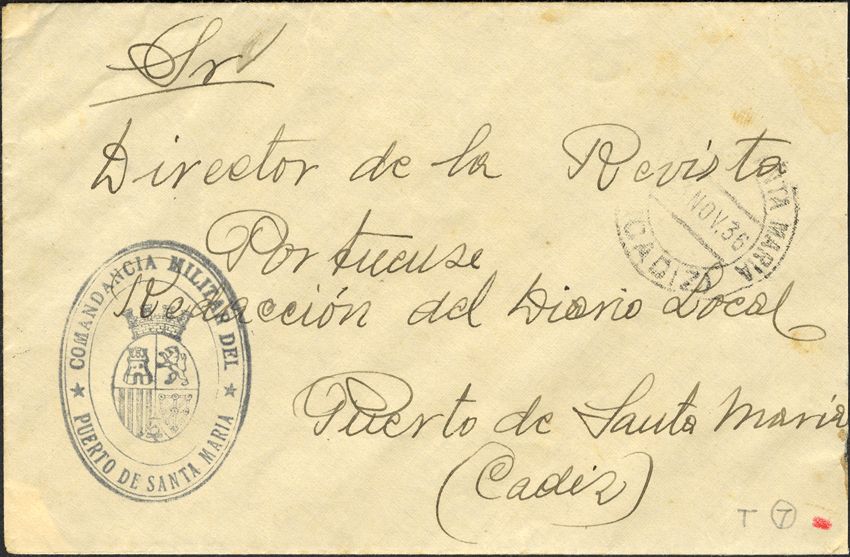 Sr
Director de la Revista
Portuense
Redacción del Diario Local
Puerto de Santa Maria
(Cadiz)
COMANDANCIA MILITAR DEL
★ PUERTO DE SANTA MARIA ★
NTA MARIA
NOV. 36
CADIZ
T 7